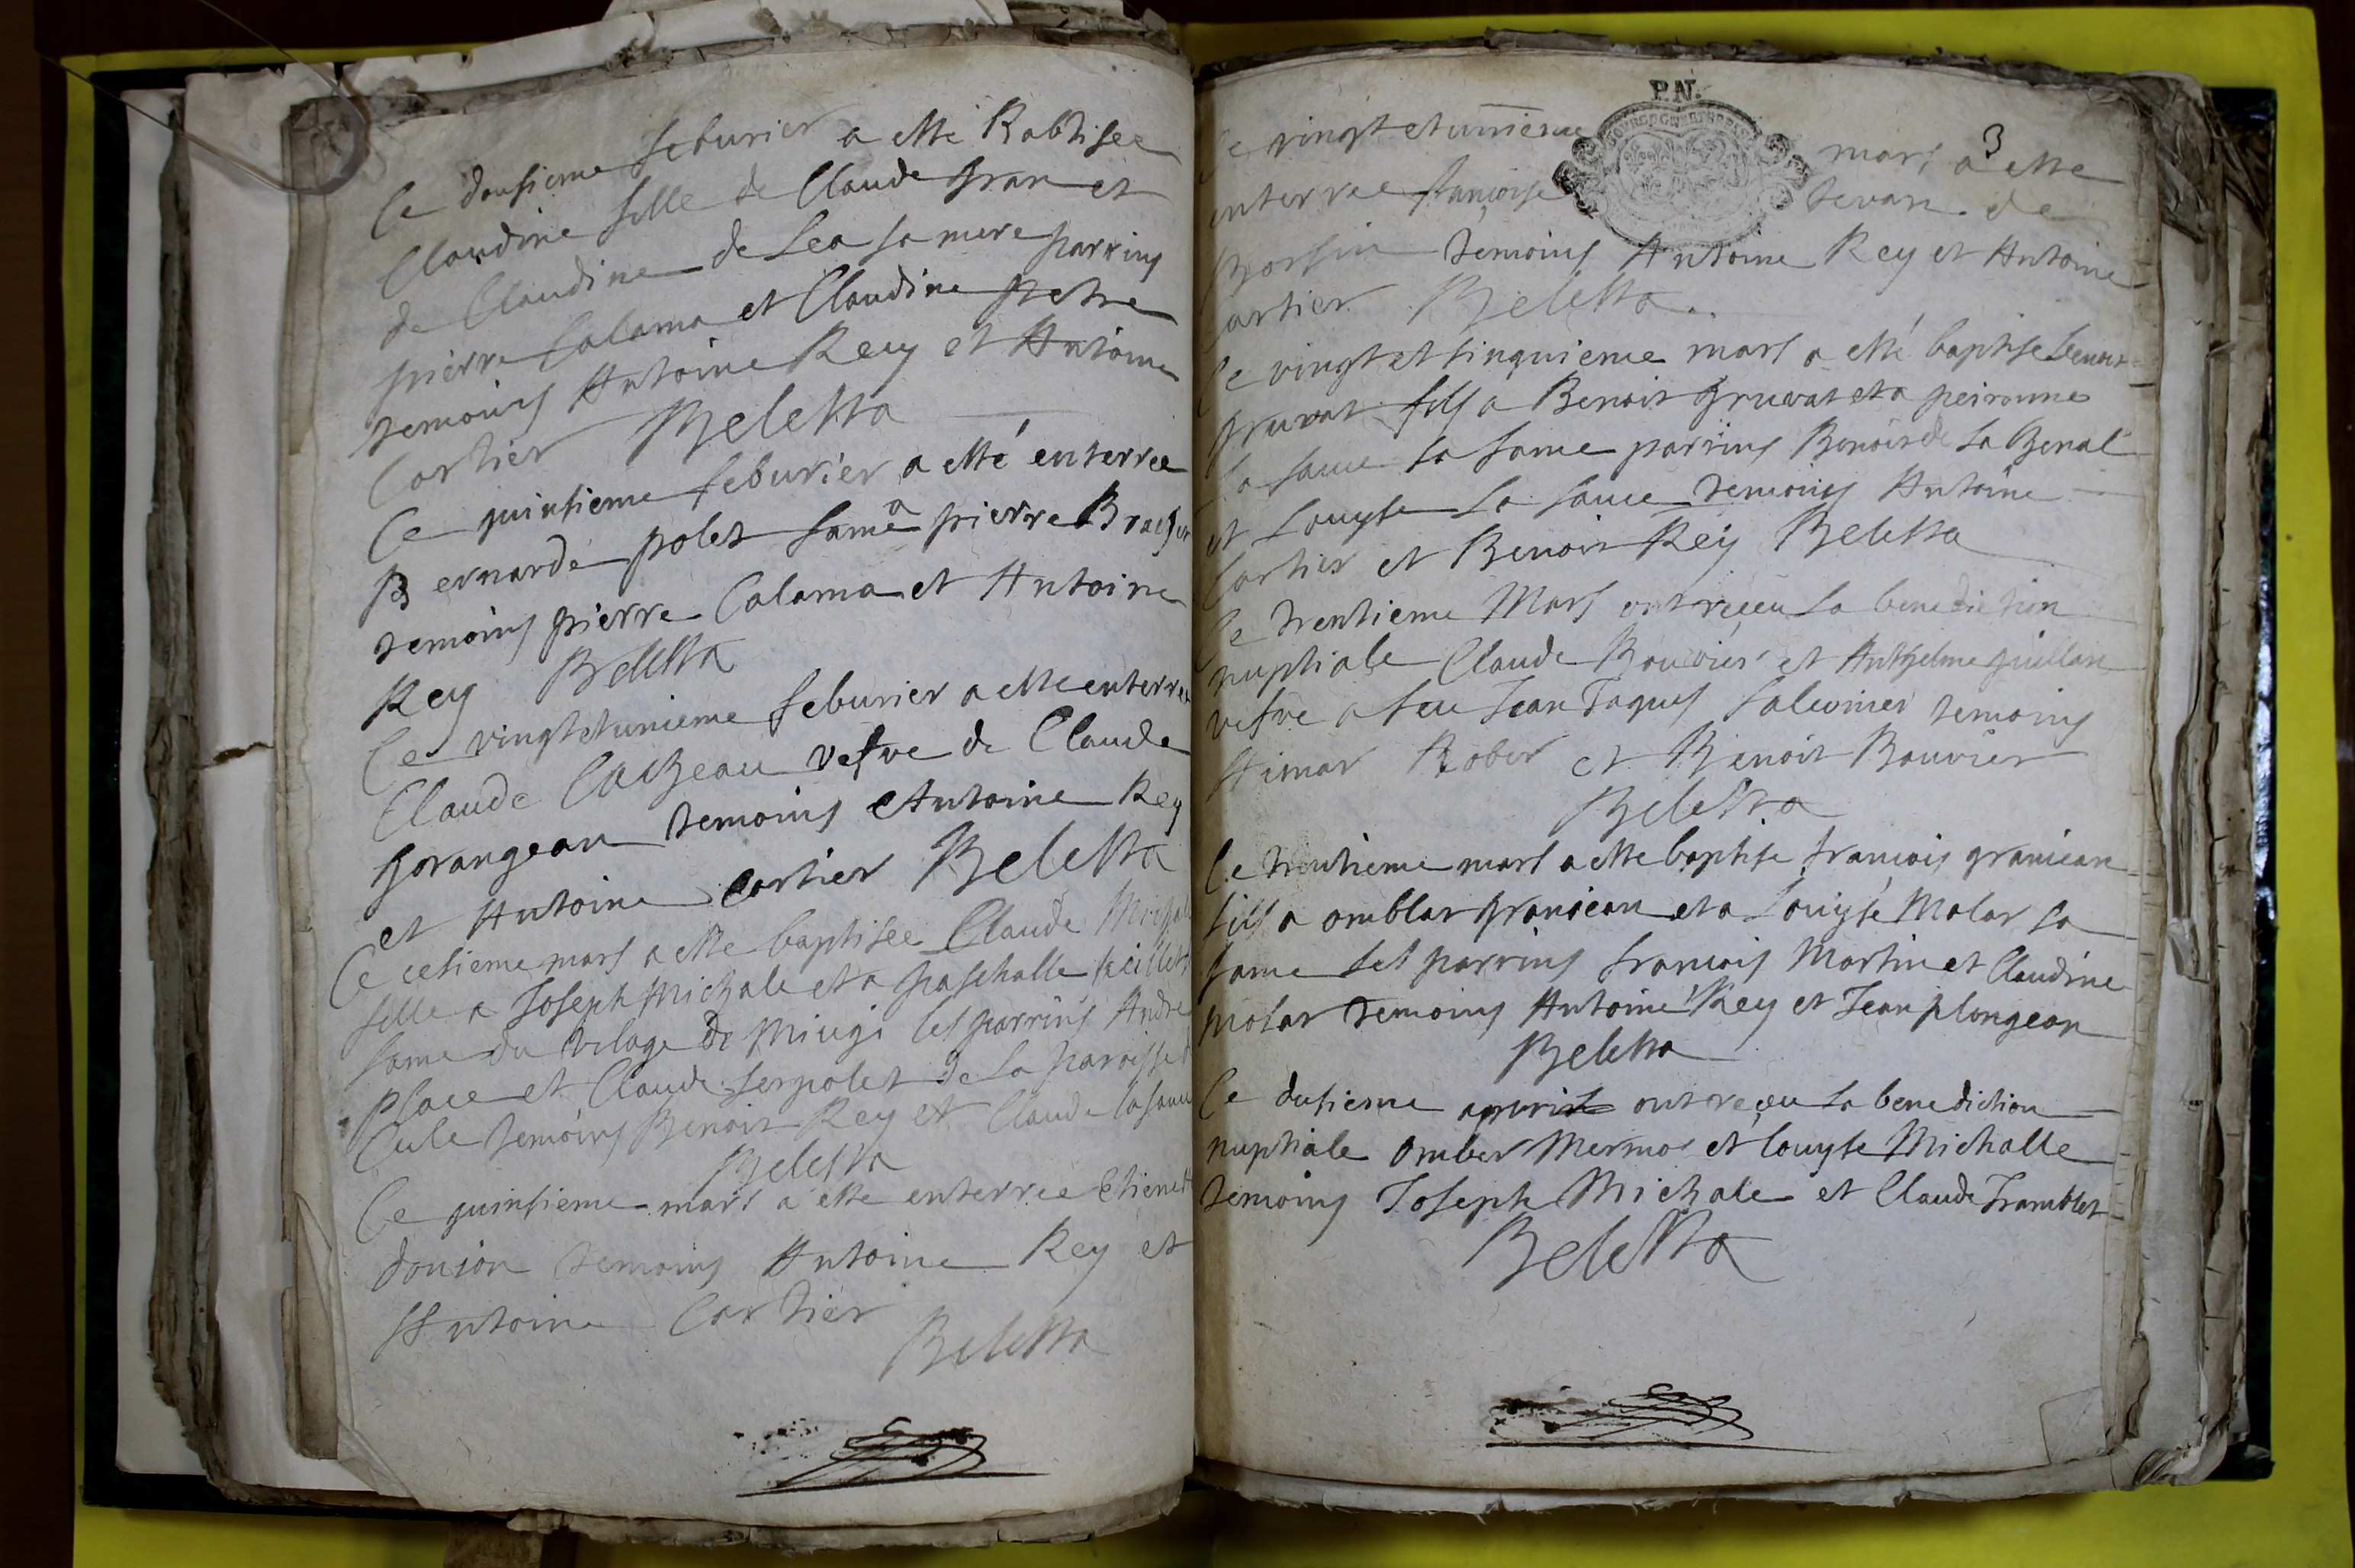 Ce dousieme feburier a esté Babtisee
Claudine fille de Claude gran et
de Claudine de Lea sa mere parrins
pierre Calama et Claudine petre
temoins Antoine Rey et Antoine
Cartier Beletta
Ce quinsieme feburier a esté enterree
Bernarde polet fame a pierre
temoins pierre Calama et Antoine
Rey Beletta
Ce vingtetunieme feburier a esté enterree
Claude Cocheau vefve de Claude
gorangean temoins Antoine Rey
et Antoine Cartier Beletta
Ce cetieme mars a esté baptisee Claude
fille a Joseph Michale et a paschalle
fame du vilage de Miugi les parrins Andre
place et Claude serpolet de la paroisse
Cule temoins Benoit Rey et Claude
Beletta
Ce quinsieme mars a esté enterree
donion temoins Antoine Rey et
Antoine Cartier
Beletta
P.N.
3
Ce vingtetunieme mars a esté
enterree francoise tevan de
temoins Antoine Rey et Antoine
Cartier Beletta
Ce vingtet sinquieme mars a esté baptise benoit
gruvat fils a Benoit gruvat et a peironne
la fame parrins Benoit de la
et Louyse temoins Antoine
Cartier et Benoit Rey Beletta
Ce trentieme Mars ont receu la benediction
nuptiale Claude Bouvier et Anthelme guillan
vefve a feu Jean Jaques temoins
Rober et Benoit Bouvier
Beletta
Ce trentieme mars a esté baptise francois granicean
fils a omblar granicean et a Louyse Molar sa
fame ses parrins francois Martin et Claudine
molar temoins Antoine Rey et Jean plongean
Beletta
Ce dusieme ont receu la benediction
nuptiale omber Mermos et Louyse Michalle
temoins Joseph Michale et Claude Tramblet
Beletta